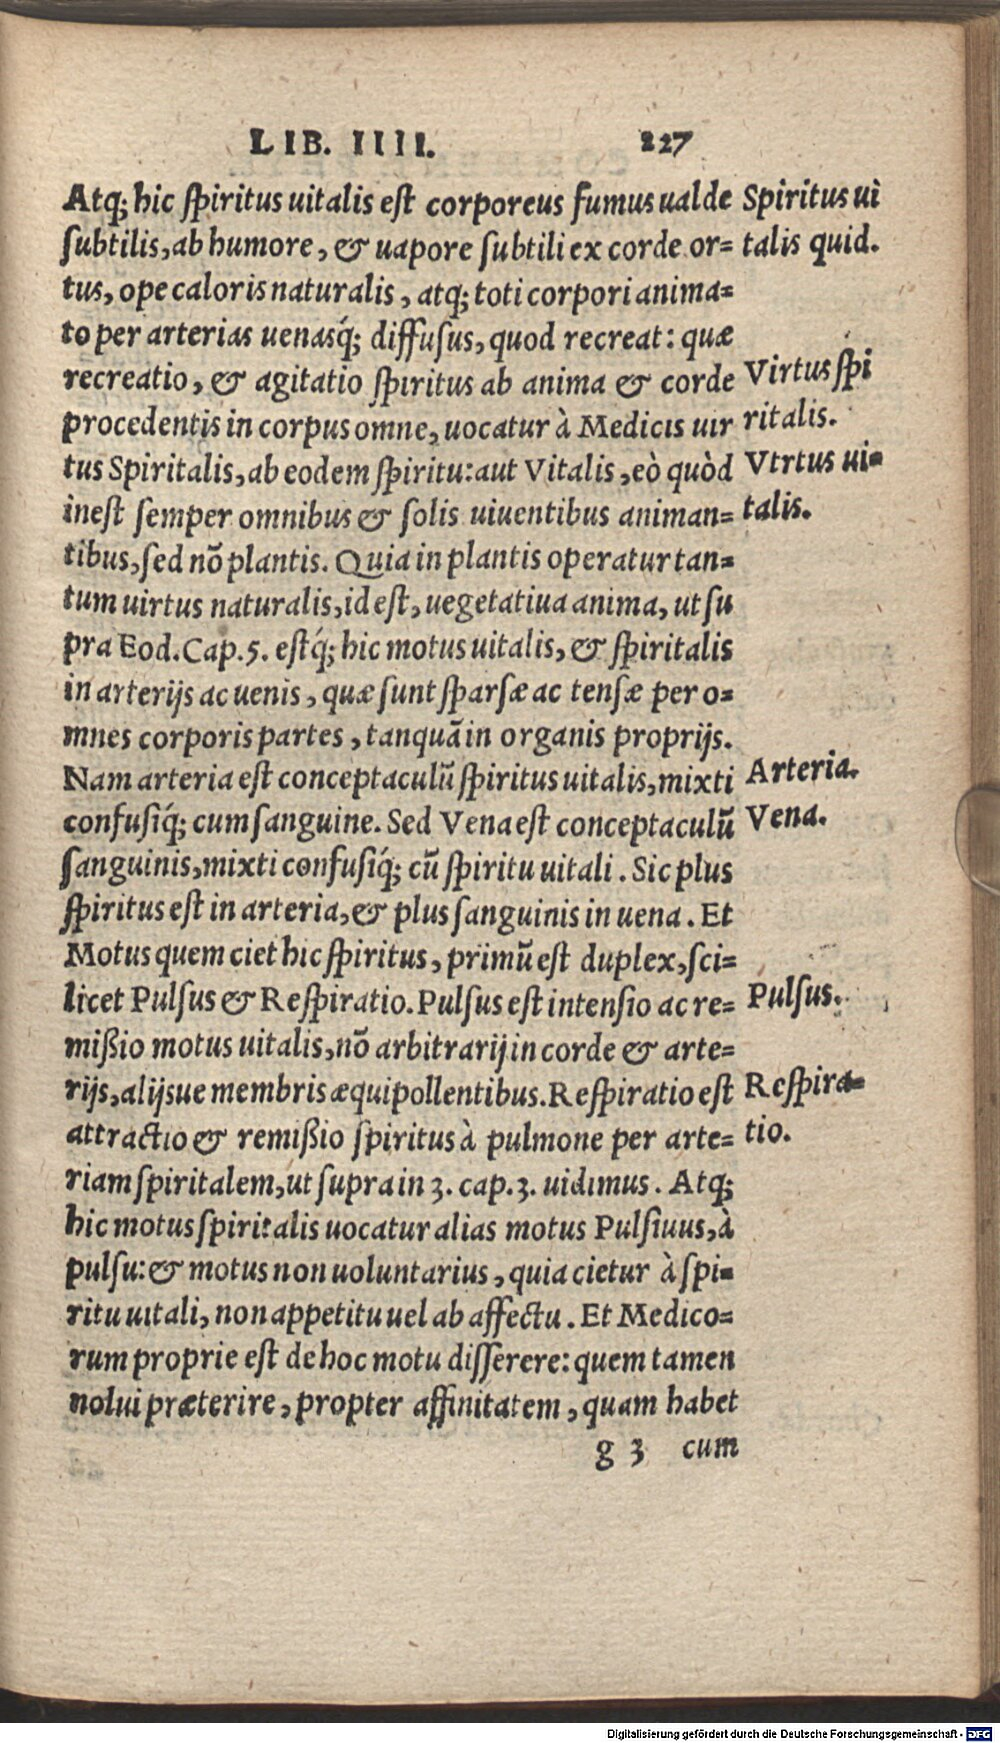 LIB. IIII. 227
Atq; hic spiritus uitalis est corporeus fumus ualde
subtilis, ab humore, & uapore subtili ex corde or=
tus, ope caloris naturalis, atq; toti corpori anima=
to per arterias uenasq́; diffusus, quod recreat: quæ
recreatio, & agitatio spiritus ab anima & corde
procedentis in corpus omne, uocatur à Medicis uir
tus Spiritalis, ab eodem spiritu: aut Vitalis, eò quòd
inest semper omnibus & solis uiuentibus animan=
tibus, sed nõ plantis. Quia in plantis operatur tan=
tum uirtus naturalis, id est, uegetatiua anima, ut su
pra Eod. Cap. 5. estq́; hic motus uitalis, & spiritalis
in arterijs ac uenis, quæ sunt sparsæ ac tensæ per o=
mnes corporis partes, tanquã in organis proprijs.
Nam arteria est conceptaculũ spiritus uitalis, mixti
confusiq́; cum sanguine. Sed Vena est conceptaculũ
sanguinis, mixti confusiq́; cũ spiritu uitali. Sic plus
spiritus est in arteria, & plus sanguinis in uena. Et
Motus quem ciet hic spiritus, primũ est duplex, sci=
licet Pulsus & Respiratio. Pulsus est intensio ac re=
mißio motus uitalis, nõ arbitrarij in corde & arte=
rijs, alijsue membris æquipollentibus. Respiratio est
attractio & remißio spiritus à pulmone per arte=
riam spiritalem, ut supra in 3. cap. 3. uidimus. Atq;
hic motus spiritalis uocatur alias motus Pulsiuus, à
pulsu: & motus non uoluntarius, quia cietur à spi=
ritu uitali, non appetitu uel ab affectu. Et Medico=
rum proprie est de hoc motu disserere: quem tamen
nolui præterire, propter affinitatem, quam habet
g 3 cum
Spiritus ui
talis quid.
Virtus spi
ritalis.
Vtrtus ui=
talis.
Arteria.
Vena.
Pulsus.
Respira=
tio.
Digitalisierung gefördert durch die Deutsche Forschungsgemeinschaft - DFG